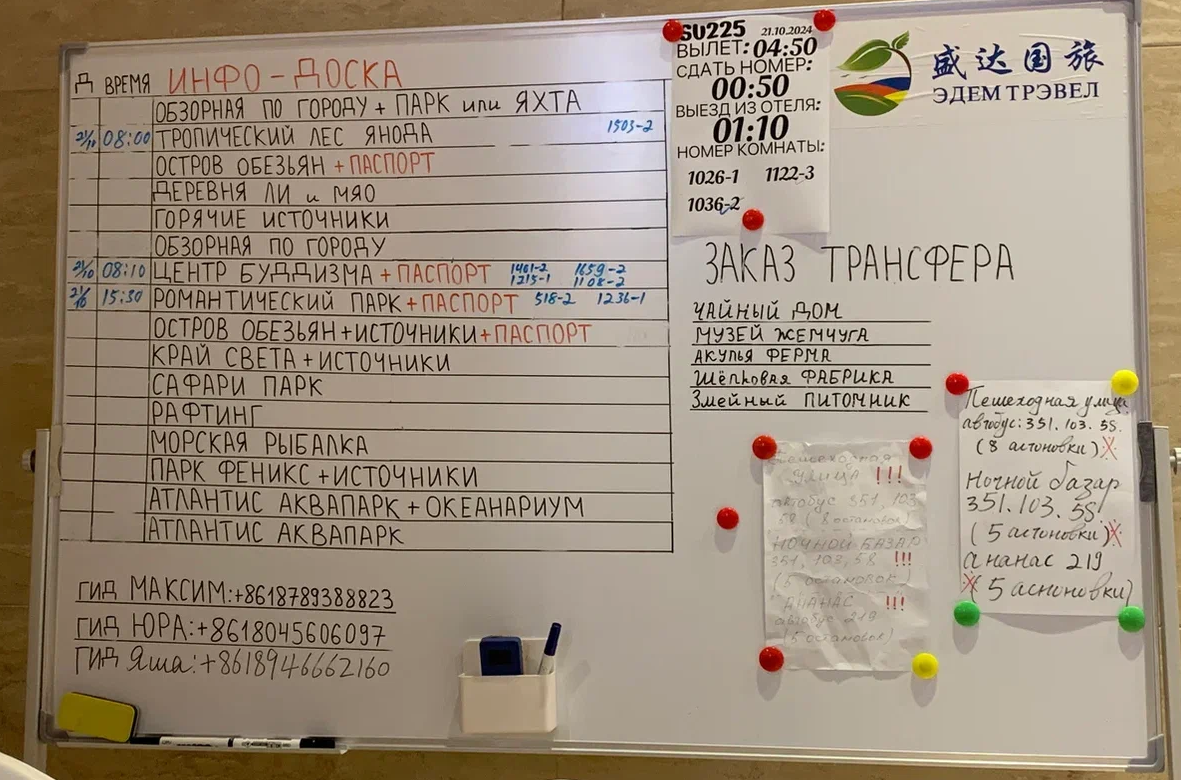 Д ВРЕМЯ ИНФО-ДОСКА
ОБЗОРНАЯ ПО ГОРОДУ + ПАРК или ЯХТА
21/10 08:00 ТРОПИЧЕСКИЙ ЛЕС ЯНОДА 1503-2
ОСТРОВ ОБЕЗЬЯН + ПАСПОРТ
ДЕРЕВНЯ ЛИ и МЯО
ГОРЯЧИЕ ИСТОЧНИКИ
ОБЗОРНАЯ ПО ГОРОДУ
21/10 08:10 ЦЕНТР БУДДИЗМА + ПАСПОРТ 1461-2 1659-2
1215-1 1108-2
21/10 15:30 РОМАНТИЧЕСКИЙ ПАРК + ПАСПОРТ 518-2 1236-1
ОСТРОВ ОБЕЗЬЯН+ИСТОЧНИКИ+ПАСПОРТ
КРАЙ СВЕТА + ИСТОЧНИКИ
САФАРИ ПАРК
РАФТИНГ
МОРСКАЯ РЫБАЛКА
ПАРК ФЕНИКС + ИСТОЧНИКИ
АТЛАНТИС АКВАПАРК + ОКЕАНАРИУМ
АТЛАНТИС АКВАПАРК
ГИД МАКСИМ:+8618789388823
ГИД ЮРА:+8618045606097
ГИД Яша:+8618946662160
SU225 21.10.2024
ВЫЛЕТ: 04:50
СДАТЬ НОМЕР:
00:50
ВЫЕЗД ИЗ ОТЕЛЯ:
01:10
НОМЕР КОМНАТЫ:
1026-1 1122-3
1036-2
盛达国旅
ЭДЕМ ТРЭВЕЛ
ЗАКАЗ ТРАНСФЕРА
ЧАЙНЫЙ ДОМ
МУЗЕЙ ЖЕМЧУГА
АКУЛЬЯ ФЕРМА
Шёлковая ФАБРИКА
Змеиный ПИТОМНИК
Пешеходная
УЛИЦА !!!
автобус 351, 103
58 (8 остановок)
НОЧНОЙ БАЗАР
351, 103, 58 !!!
(5 остановок
АНАНАС !!!
автобус 219
(5 остановок)
Пешеходная улица
автобус: 351. 103. 58.
(8 астоновки)
Ночной базар
351. 103. 58
(5 астоновки)
ананас 219
(5 асноновки)